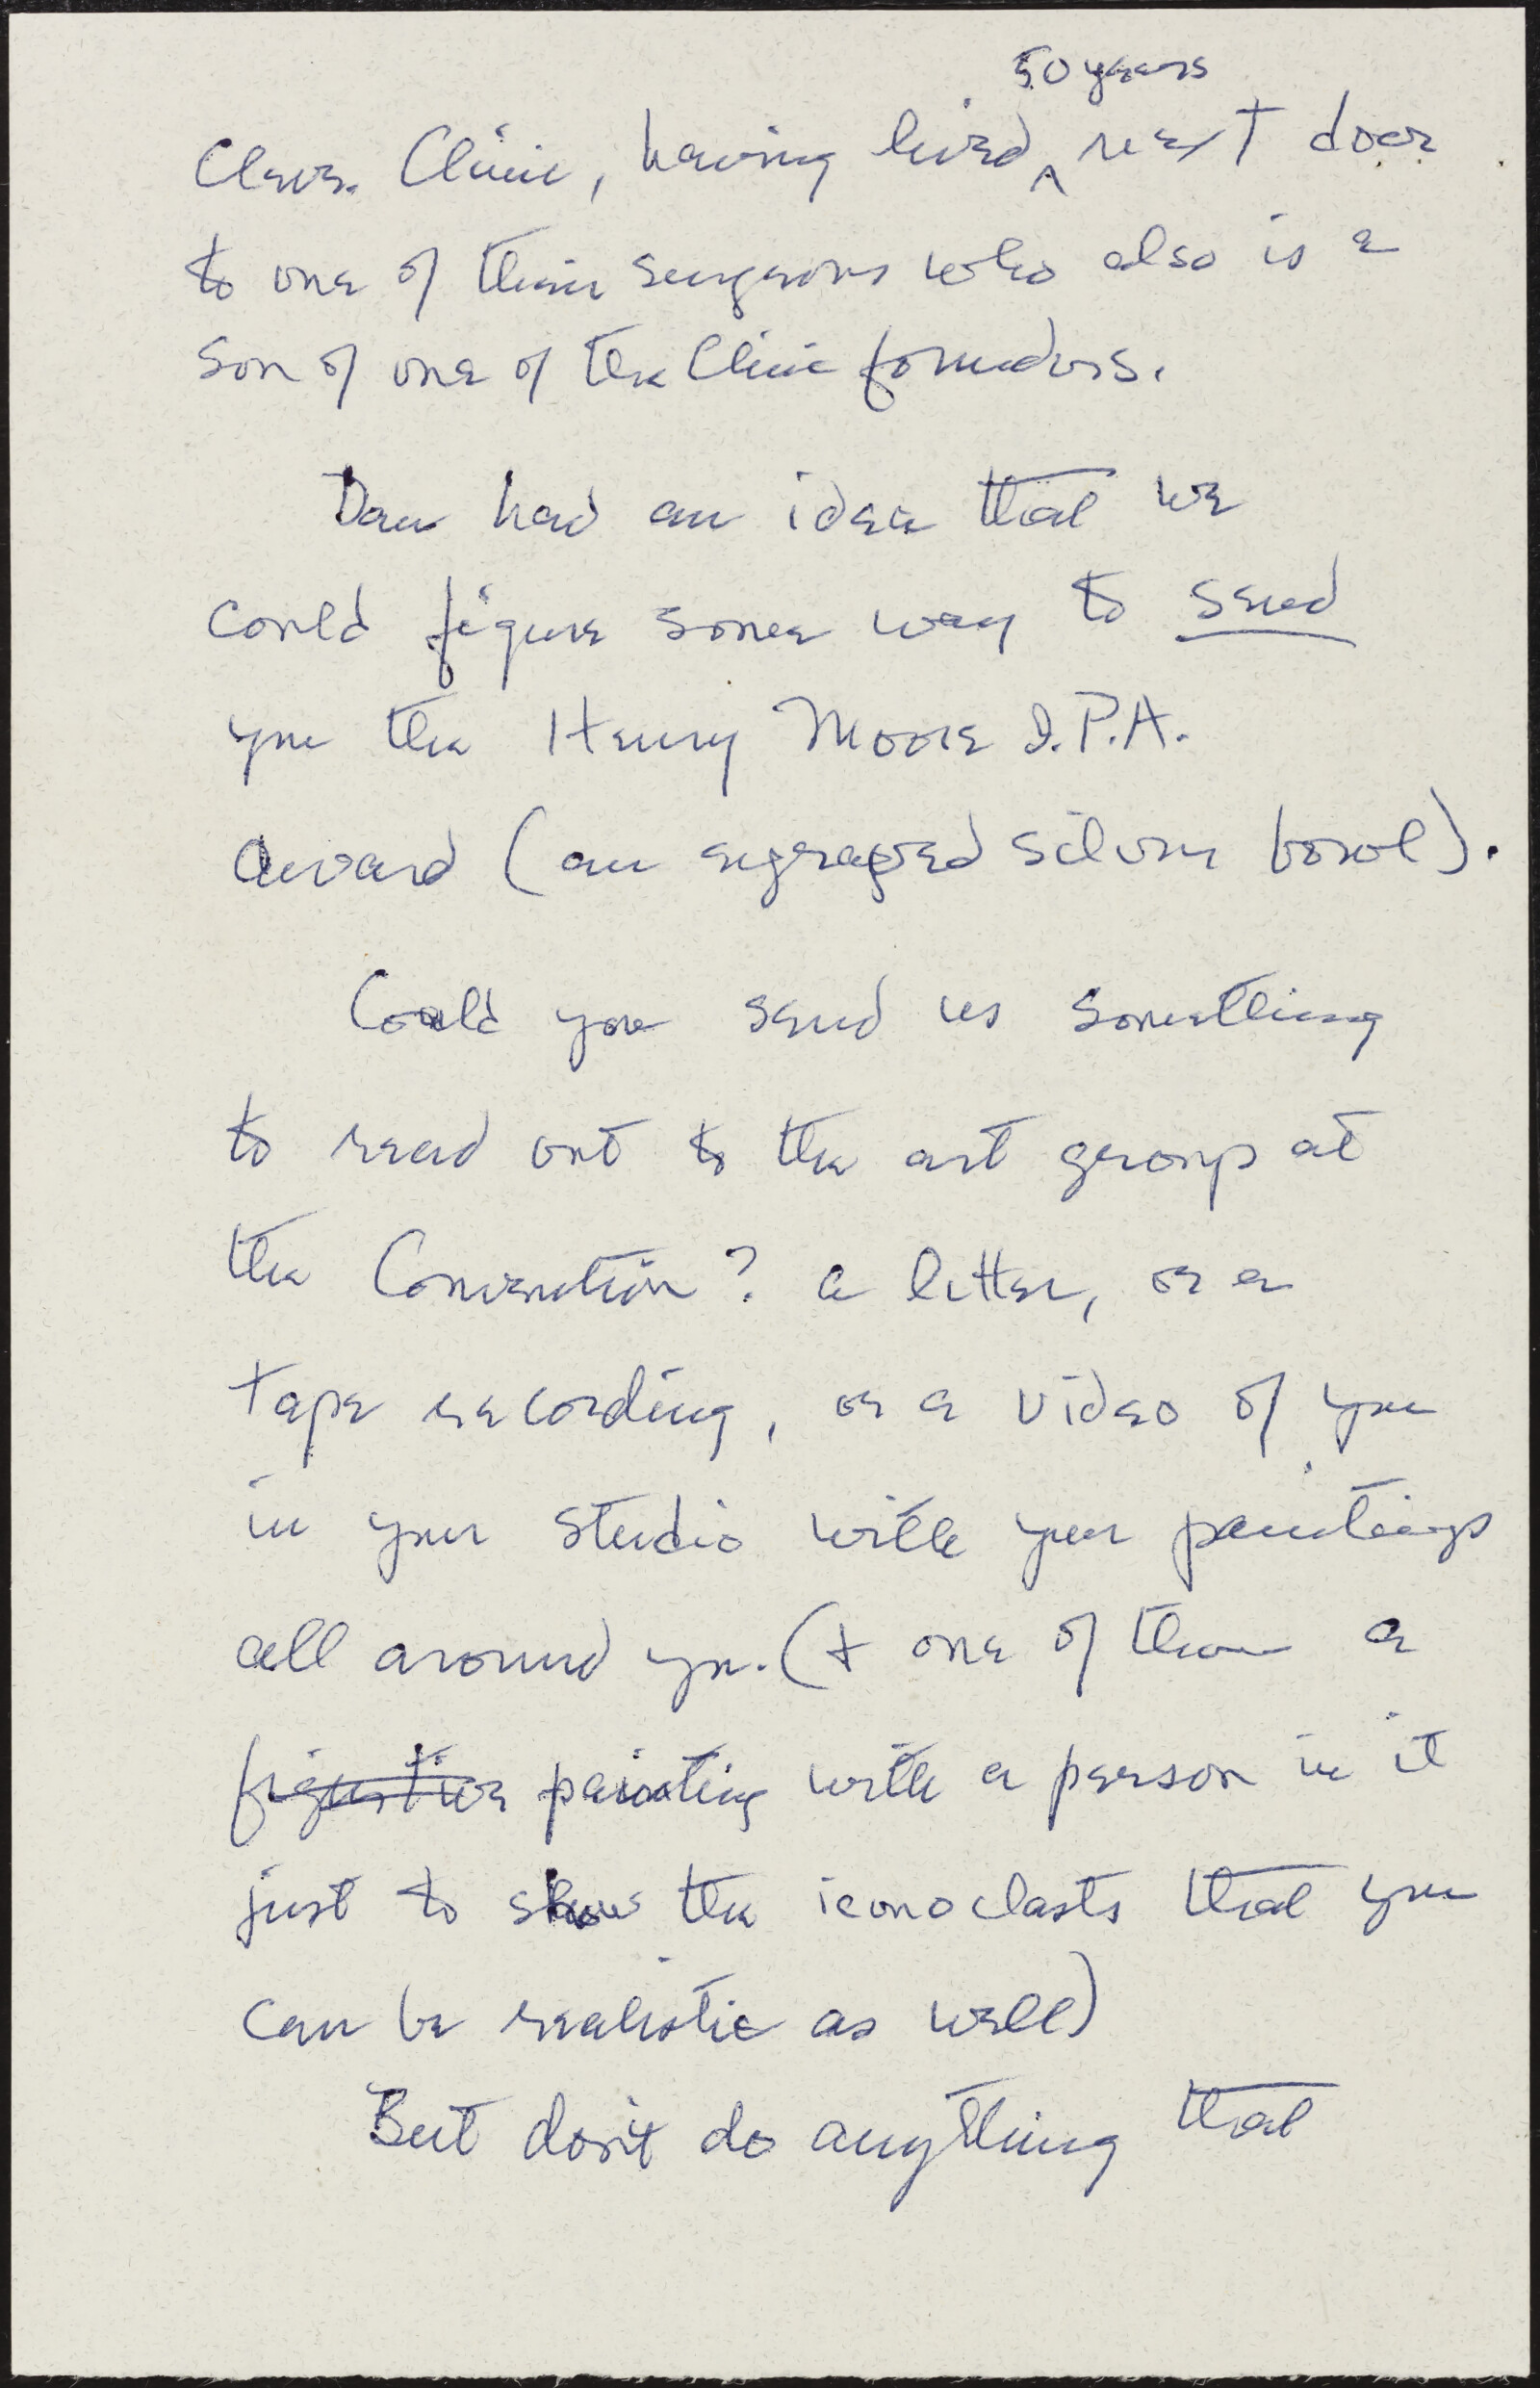 50 years
Cleve. Clinic, having lived ^ next door
to one of their surgeons who also is a
son of one of the Clinic founders.
Dan had an idea that we
could figure some way to send
you the Henry Moore I.P.A.
Award (an engraved silver bowl).
Could you send us something
to read out to the art group at
the Convention? a letter, or a
tape recording, or a video of you
in your studio with your paintings
all around you. (+ one of them a
figurative painting with a person in it
just to show the iconoclasts that you
can be realistic as well)
But don't do anything that